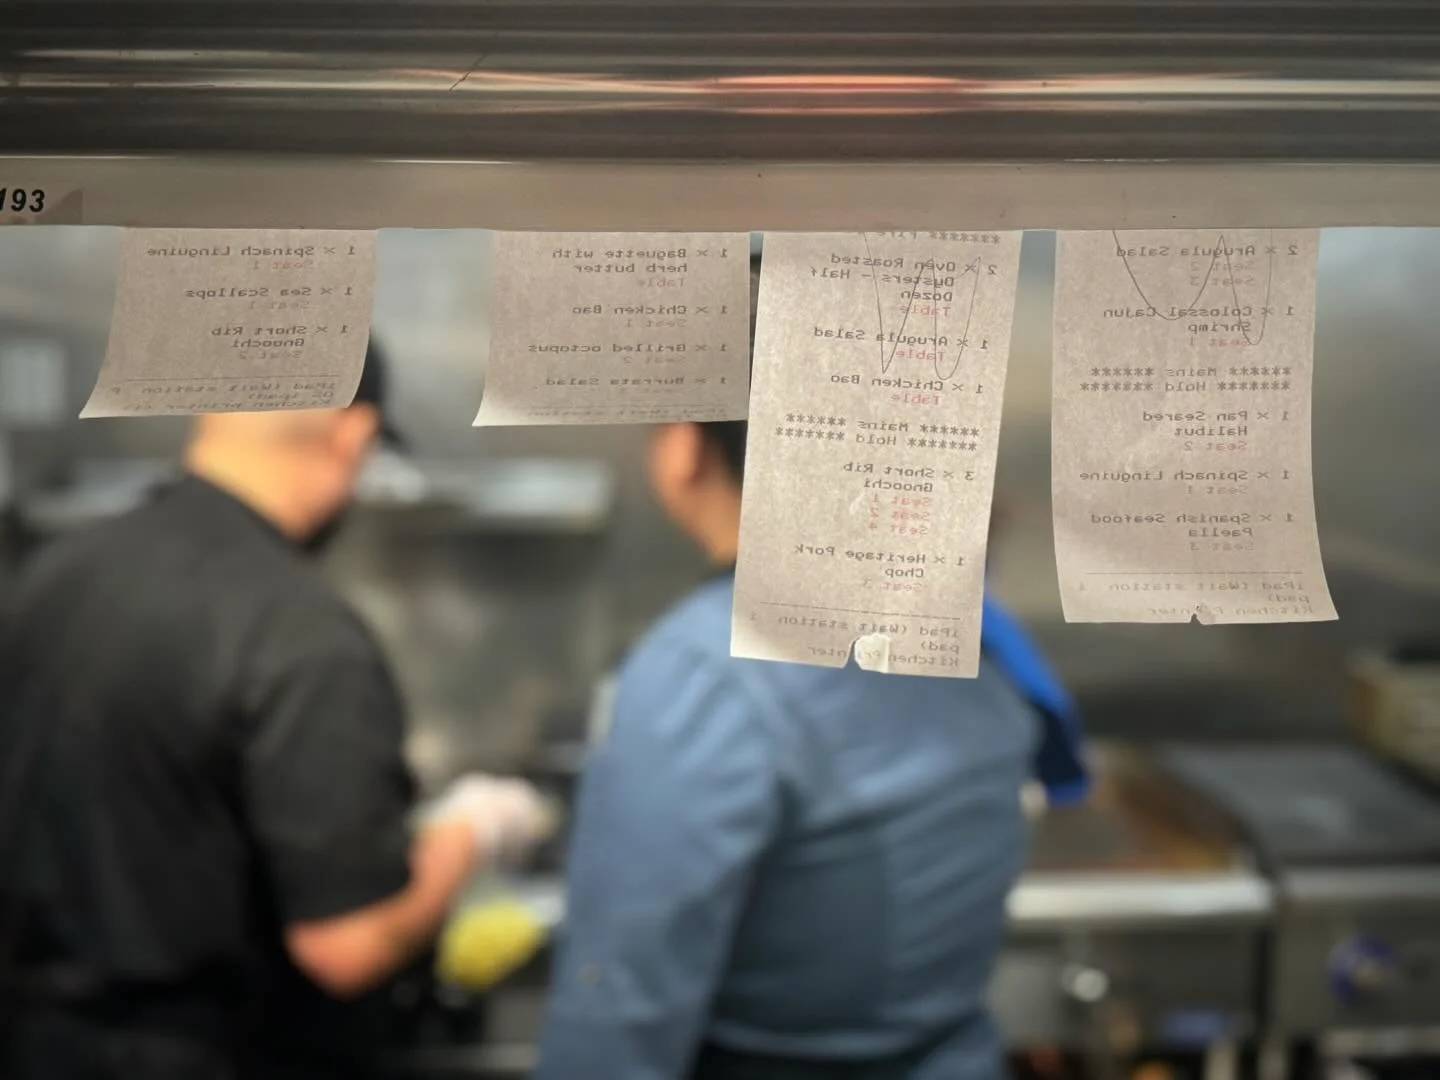 193
1 × Spinach Linguine
Seat 1
1 × Sea Scallops
Seat 1
1 × Short Rib
Gnocchi
Seat 2
iPad (Wait station P
OS ipad)
Kitchen printer
1 × Baguette with
herb butter
Table
1 × Chicken Bao
Seat 1
1 × Grilled octopus
Seat 2
1 × Burrata Salad
iPad (Wait stati
******* Fire *******
2 × Oven Roasted
Oysters - Half
Dozen
Table
1 × Arugula Salad
Table
1 × Chicken Bao
Table
****** Mains ******
******* Hold *******
3 × Short Rib
Gnocchi
Seat 1
Seat 2
Seat 4
1 × Heritage Pork
Chop
Seat 3
iPad (Wait station 1
pad)
Kitchen Printer
2 × Arugula Salad
Seat 2
Seat 3
1 × Colossal Cajun
Shrimp
Seat 1
****** Mains ******
******* Hold *******
1 × Pan Seared
Halibut
Seat 2
1 × Spinach Linguine
Seat 1
1 × Spanish Seafood
Paella
Seat 3
iPad (Wait station 1
pad)
Kitchen Printer